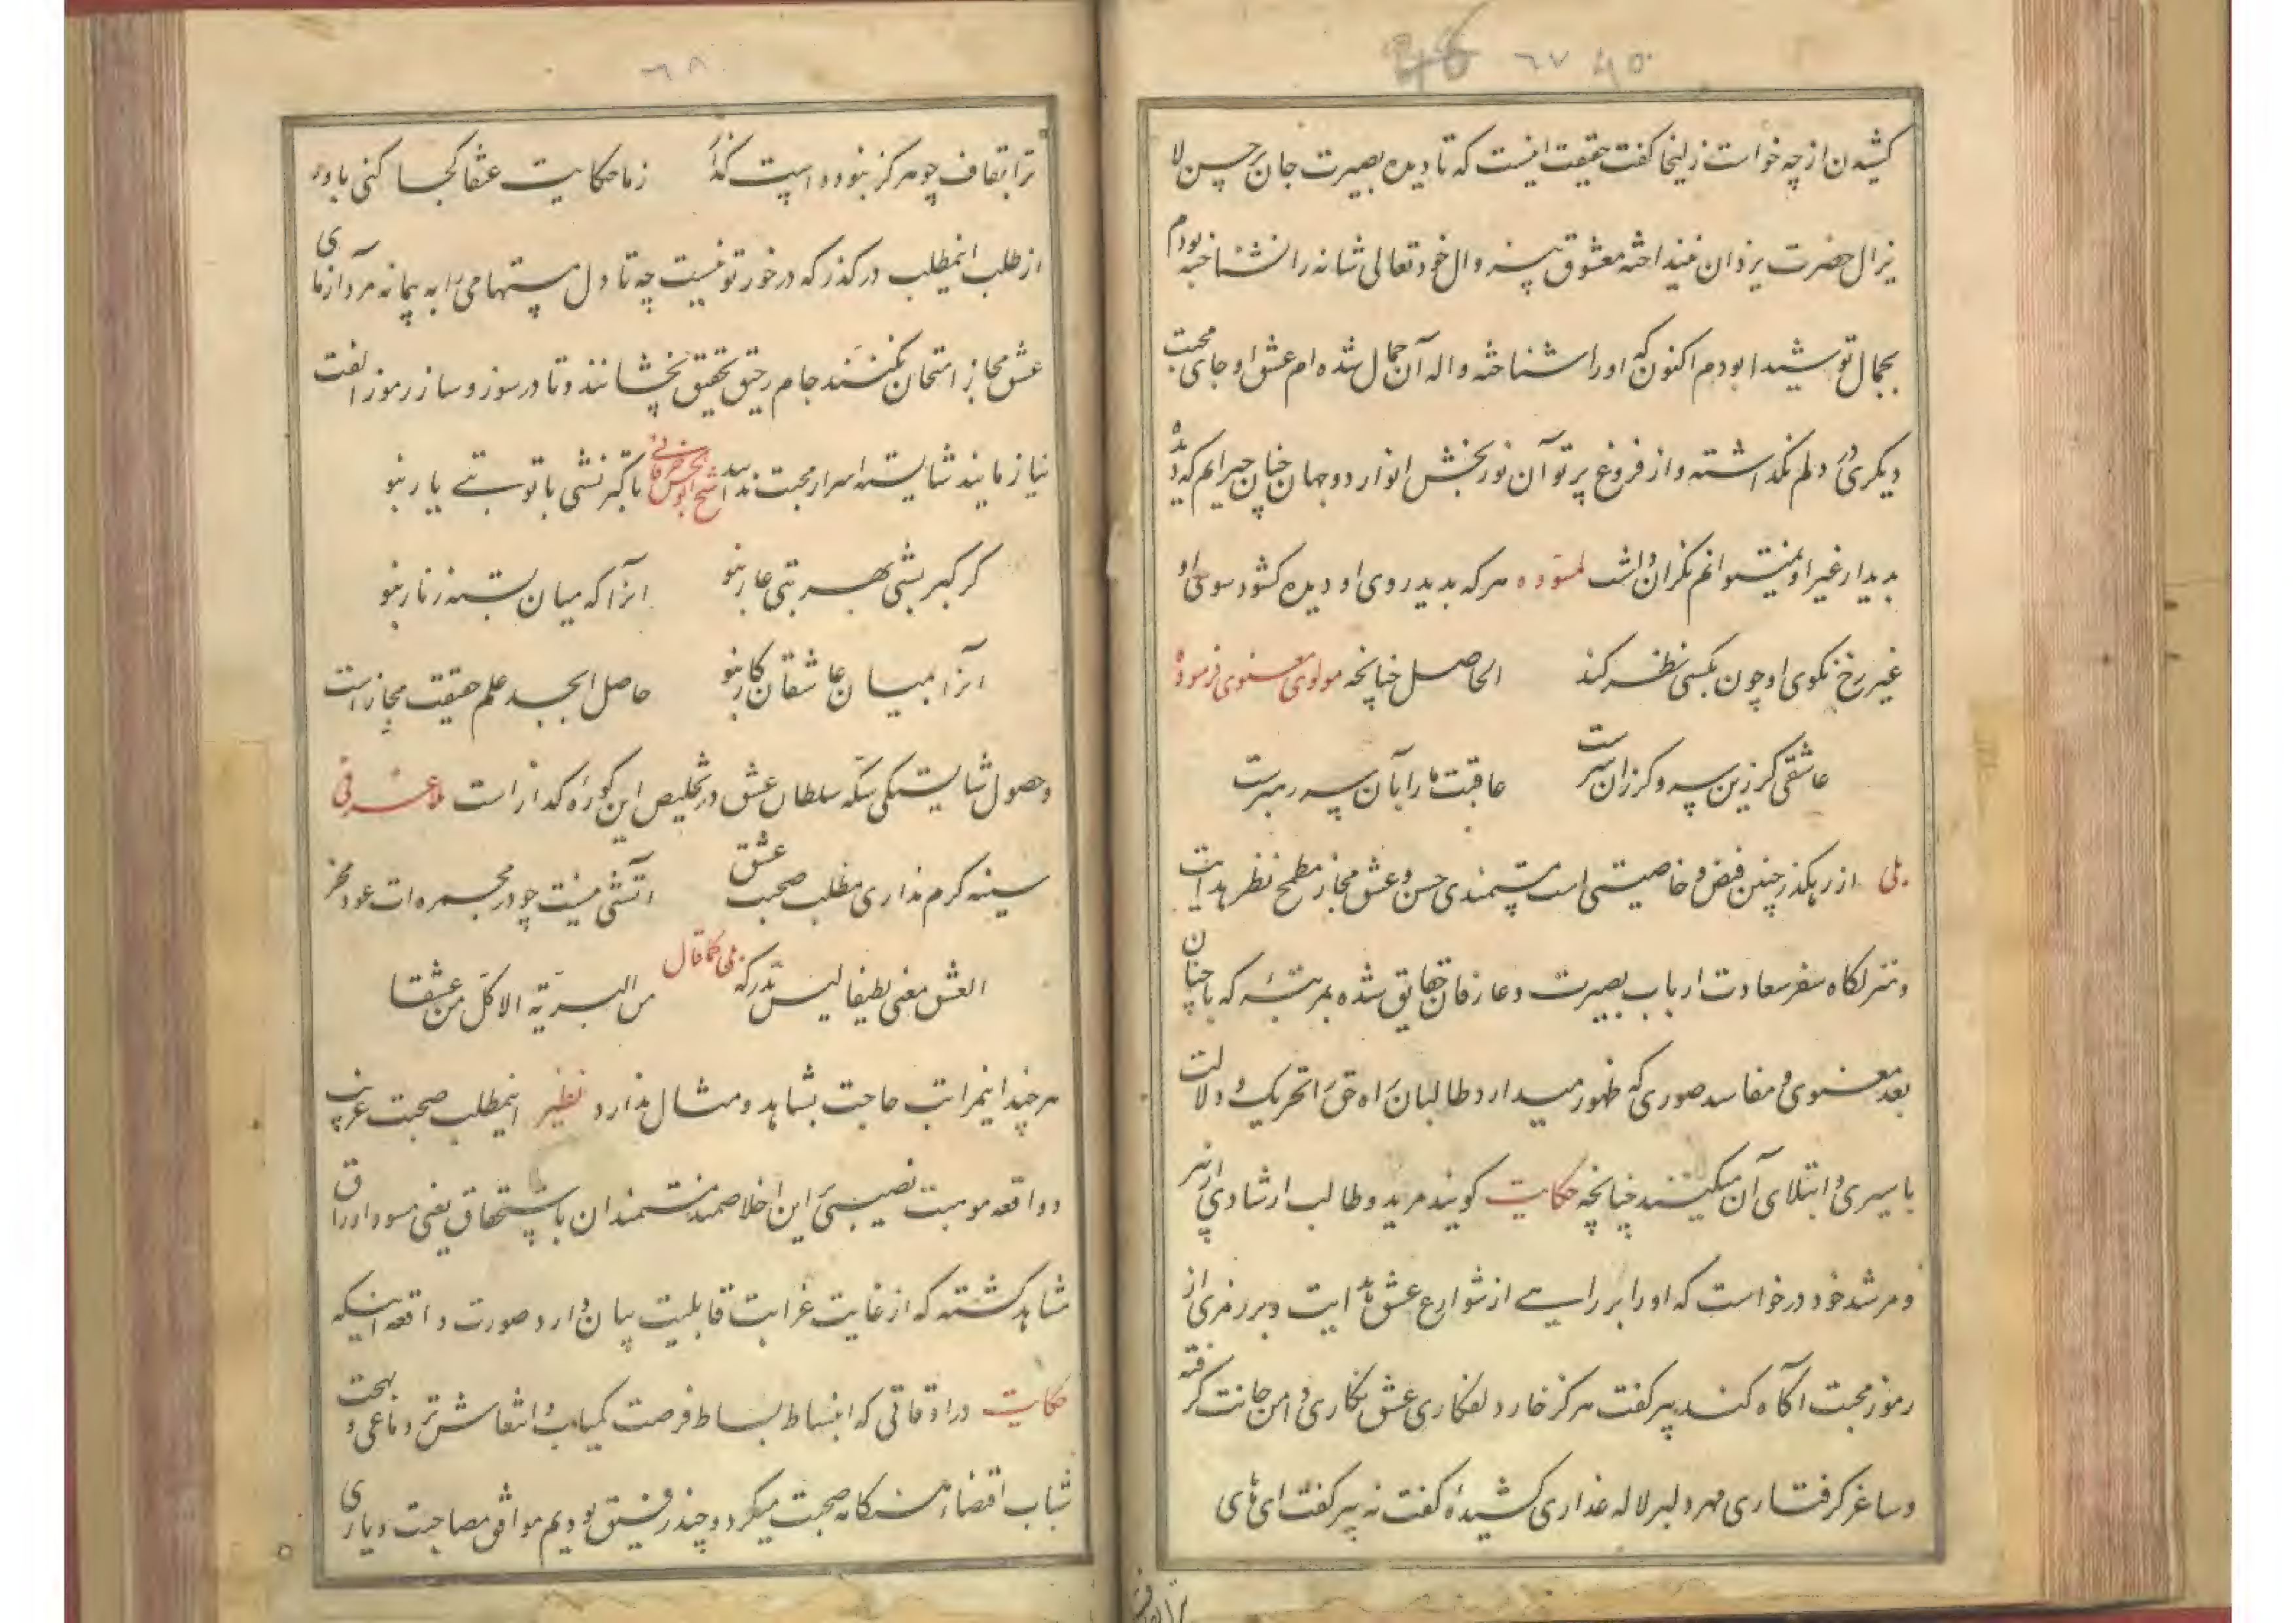 46 ٦٧ ۴۵
کشیدن از چه خواست زلیخا گفت حقیقت اینست که تا دیده بصیرت جان بر حسن لا
یزال حضرت یزدان نینداخته معشوق بیزوال خود تعالی شانه را نشناخته بودم
بجمال تو شیدا بودم اکنون که او را شناخته واله آن جمال شده ام عشق او جای محبت
دیگری در دلم نگذاشته و از فروغ پرتو آن نوربخش انوار دو جهان چنان حیرانم که دیده
بدیدار غیر او نمیتوانم نگران داشت لمسوده هر که بدید روی او دیده گشود سوی او
غیر رخ نکوی او چون بکسی نظر کند الحاصل چنانچه مولوی معنوی فرموده
عاشقی گر زین سر و گر زان سرست عاقبت ما را بآن سر رهبرست
بلی از رهگذر چنین فیض و خاصیتی است مستمندی حسن و عشق مجاز مطمح نظر هدایت
و منزلگاه سفر سعادت ارباب بصیرت و عارفان حقایق شده بمرتبهٔ که با چنان
بعد معنوی و مفاسد صوری که ظهور میدارد طالبان راه حق را تحریک و دلالت
باسیری و ابتلای آن میکنند چنانچه حکایت گویند مرید و طالب ارشادی از پیر
و مرشد خود درخواست که او را براهی از شوارع عشق هدایت و برمزی از
رموز محبت آگاه کند پیر گفت هرگز خار دلفکاری عشق نگاری دامن جانت گرفته
و ساغر گرفتاری مهر دلبر لاله عذاری کشیدهٔ گفت نه پیر گفت ای های
٦٨
ترا بقاف چو هرگز نبوده است گذر ز ما حکایت عنقا کجا کنی باور
از طلب اینمطلب درگذر که درخور تو نیست چه تا دل مستهامی را به پیمانه مرد آزمای
عشق مجاز امتحان نکنند جام رحیق تحقیق نچشانند و تا در سوز و ساز رموز الفت
نیازمایند شایسته اسرار محبت ندانند شیخ ابوالحسن خرقانی تا گبر نشی با تو بتی یار نبو
گر گبر بشی بهر بتی عار نبو آنرا که میان بسته زنار نبو
آنرا بمیان عاشقان کار نبو حاصل ابجد علم حقیقت مجاز است
و حصول شایستگی سکه سلطان عشق در تخلیص این کوره گداز است ملا عرفی
سینه گرم نداری مطلب صحبت عشق آتشی نیست چو در مجمره ات عود مخر
بلی کما قال
العشق معنی لطیفا لیس تدرکه من البریة الا کل من عشقا
هرچند اینمراتب حاجت بشاهد و مثال ندارد نظیر اینمطلب صحبت غریب
و واقعه موهبت نصیبی این اخلاصمند مستمندان باستحقاق یعنی مسود اوراق
مشاهد گشته که از غایت غرابت قابلیت بیان دارد صورت واقعه اینکه
حکایت در اوقاتی که انبساط بساط فرصت کمیاب و انتعاش تر دماغی و بهجت
شباب اقتضاء هنگامه صحبت میکرد و چند رفیق بودیم موافق مصاحبت و یاری